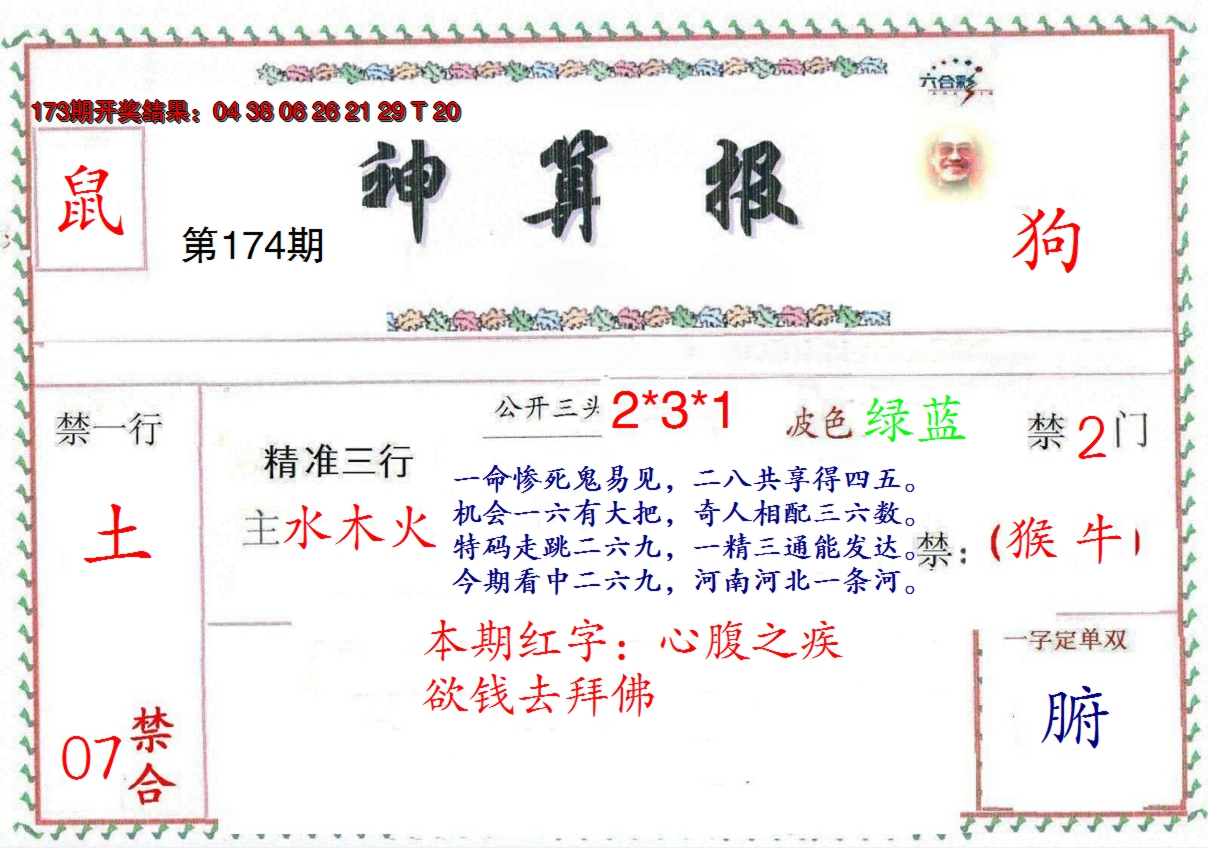 六合彩
173期开奖结果：04 38 06 26 21 29 T 20
神算报
鼠
第174期
狗
公开三头 2*3*1
波色 绿蓝
禁一行
禁2门
精准三行
主水木火
一命惨死鬼易见，二八共享得四五。
机会一六有大把，奇人相配三六数。
特码走跳二六九，一精三通能发达。
今期看中二六九，河南河北一条河。
禁：（猴 牛）
土
本期红字：心腹之疾
欲钱去拜佛
一字定单双
腑
07禁合